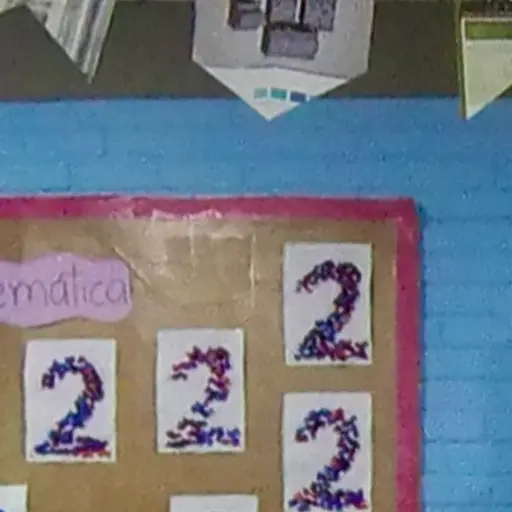 emática
2
2
2
2